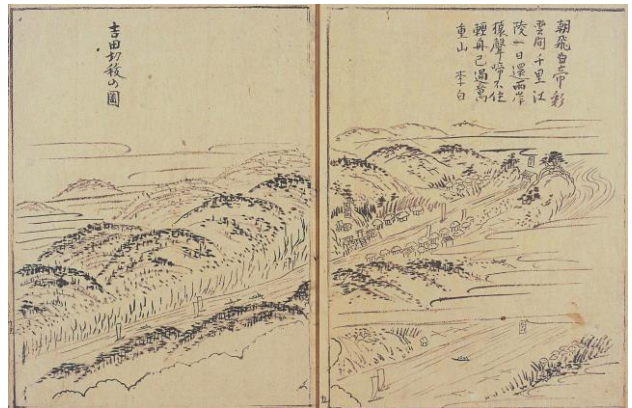 朝辭白帝彩
雲間千里江
陵一日還兩岸
猿聲啼不住
輕舟已過萬
重山 李白
吉田切の圖